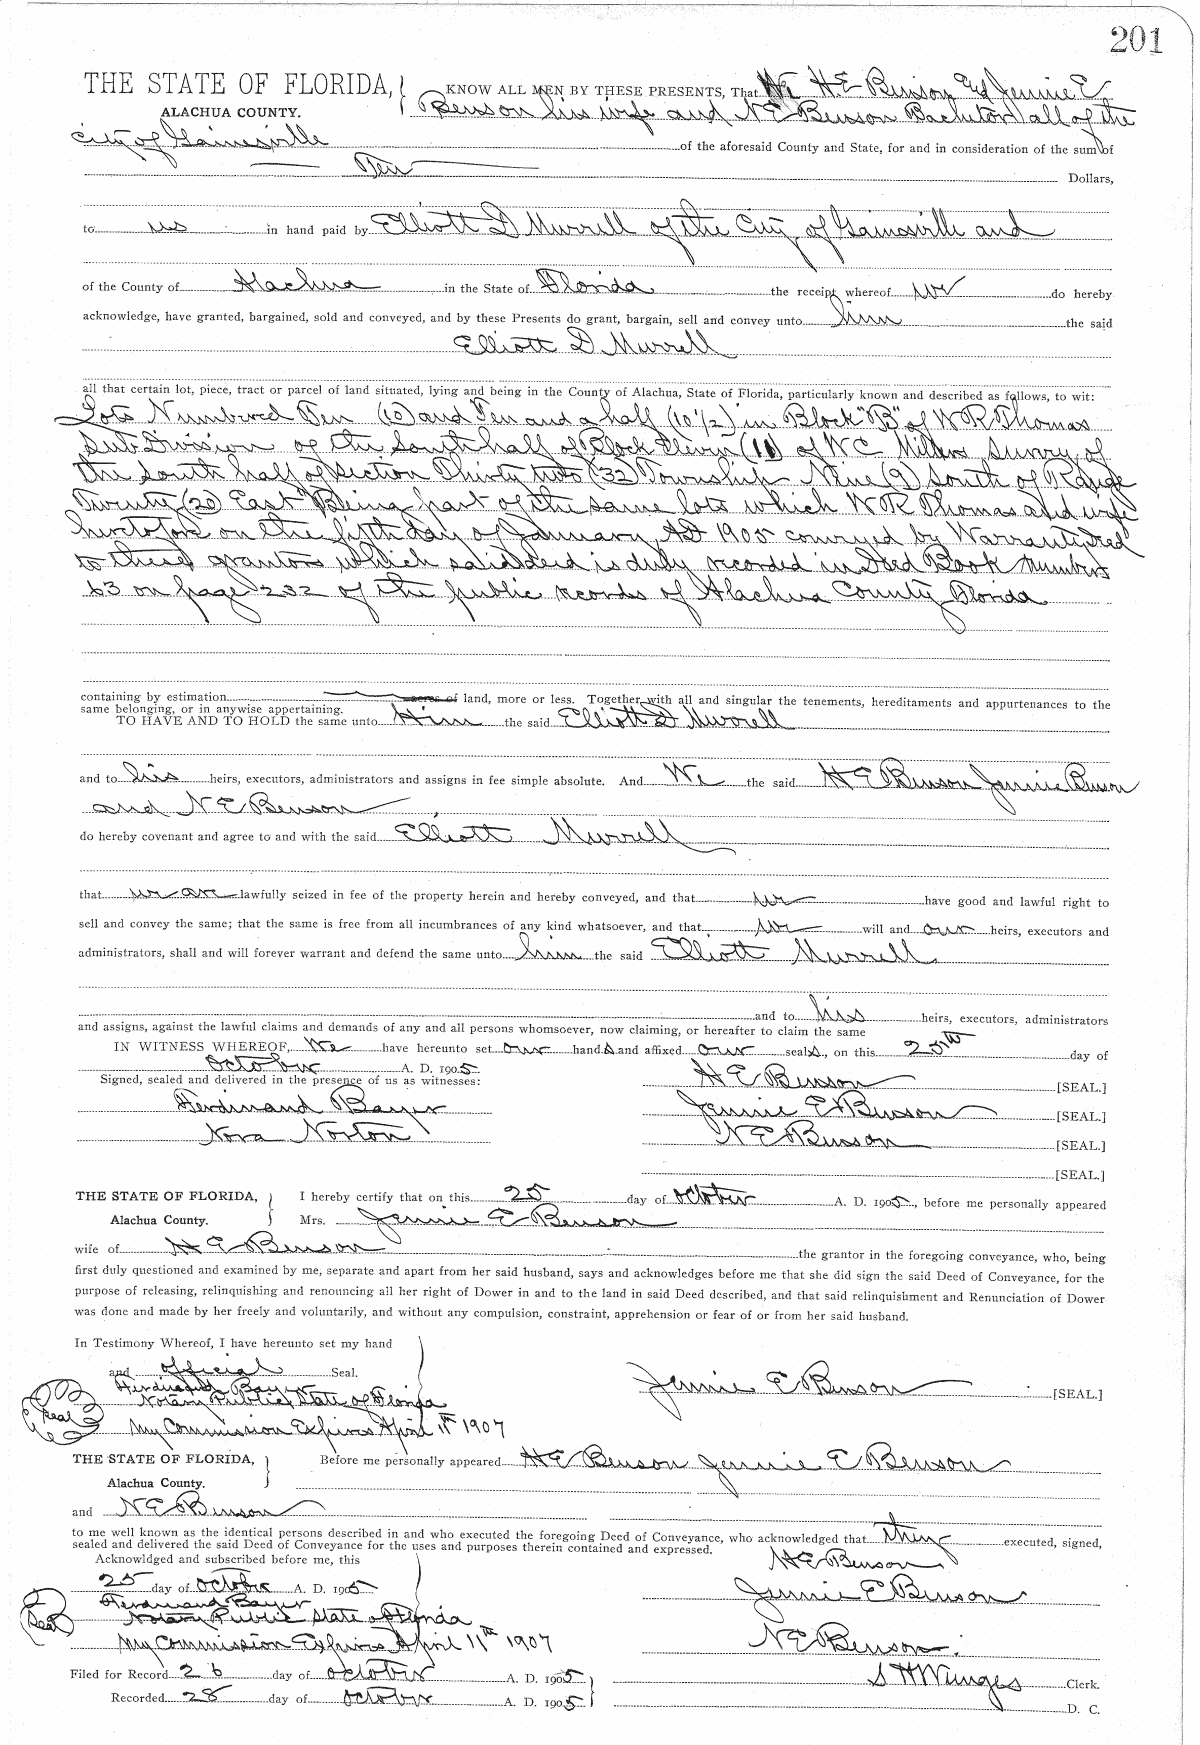 201
THE STATE OF FLORIDA, KNOW ALL MEN BY THESE PRESENTS, That We H E Benson and Jennie E
ALACHUA COUNTY. Benson his wife and N E Benson Bachelor all of the
City of Gainesville of the aforesaid County and State, for and in consideration of the sum of
Ten Dollars,
to us in hand paid by Elliott D Murrell of the City of Gainesville and
of the County of Alachua in the State of Florida the receipt whereof we do hereby
acknowledge, have granted, bargained, sold and conveyed, and by these Presents do grant, bargain, sell and convey unto him the said
Elliott D Murrell
all that certain lot, piece, tract or parcel of land situated, lying and being in the County of Alachua, State of Florida, particularly known and described as follows, to wit:
Lots Numbered Ten (10) and Ten and a half (10 1/2) in Block "B" of W R Thomas
Sub Division of the South half of Block Eleven (11) of W C Millers Survey of
the South half of Section Thirty two (32) Township Nine (9) South of Range
Twenty (20) East Being part of the same lots which W R Thomas and wife
heretofore on the fifth day of January AD 1905 conveyed by Warranty deed
to these grantors which said deed is duly recorded in Deed Book Number
63 on page 232 of the public records of Alachua County Florida
containing by estimation acres of land, more or less. Together with all and singular the tenements, hereditaments and appurtenances to the
same belonging, or in anywise appertaining.
TO HAVE AND TO HOLD the same unto Him the said Elliott D Murrell
and to his heirs, executors, administrators and assigns in fee simple absolute. And We the said H E Benson Jennie Benson
and N E Benson
do hereby covenant and agree to and with the said Elliott Murrell
that we are lawfully seized in fee of the property herein and hereby conveyed, and that we have good and lawful right to
sell and convey the same; that the same is free from all incumbrances of any kind whatsoever, and that we will and our heirs, executors and
administrators, shall and will forever warrant and defend the same unto him the said Elliott Murrell
and to his heirs, executors, administrators
and assigns, against the lawful claims and demands of any and all persons whomsoever, now claiming, or hereafter to claim the same
IN WITNESS WHEREOF, We have hereunto set our hands and affixed our seals, on this 25th day of
October A. D. 1905
Signed, sealed and delivered in the presence of us as witnesses: H E Benson [SEAL.]
Ferdinand Bayer Jennie E Benson [SEAL.]
Nora Norton N E Benson [SEAL.]
[SEAL.]
THE STATE OF FLORIDA, I hereby certify that on this 25 day of October A. D. 1905, before me personally appeared
Alachua County. Mrs. Jennie E Benson
wife of H E Benson the grantor in the foregoing conveyance, who, being
first duly questioned and examined by me, separate and apart from her said husband, says and acknowledges before me that she did sign the said Deed of Conveyance, for the
purpose of releasing, relinquishing and renouncing all her right of Dower in and to the land in said Deed described, and that said relinquishment and Renunciation of Dower
was done and made by her freely and voluntarily, and without any compulsion, constraint, apprehension or fear of or from her said husband.
In Testimony Whereof, I have hereunto set my hand
and official Seal.
Ferdinand Bayer Jennie E Benson [SEAL.]
Notary Public State of Florida
Seal
My Commission Expires April 11th 1907
THE STATE OF FLORIDA, Before me personally appeared H E Benson Jennie E Benson
Alachua County.
and N E Benson
to me well known as the identical persons described in and who executed the foregoing Deed of Conveyance, who acknowledged that they executed, signed,
sealed and delivered the said Deed of Conveyance for the uses and purposes therein contained and expressed.
Acknowldged and subscribed before me, this H E Benson
25 day of October A. D. 1905 Jennie E Benson
Ferdinand Bayer
Seal Notary Public State of Florida
My Commission Expires April 11th 1907 N E Benson
Filed for Record 26 day of October A. D. 1905 S H Wienges Clerk.
Recorded 28 day of October A. D. 1905 D. C.